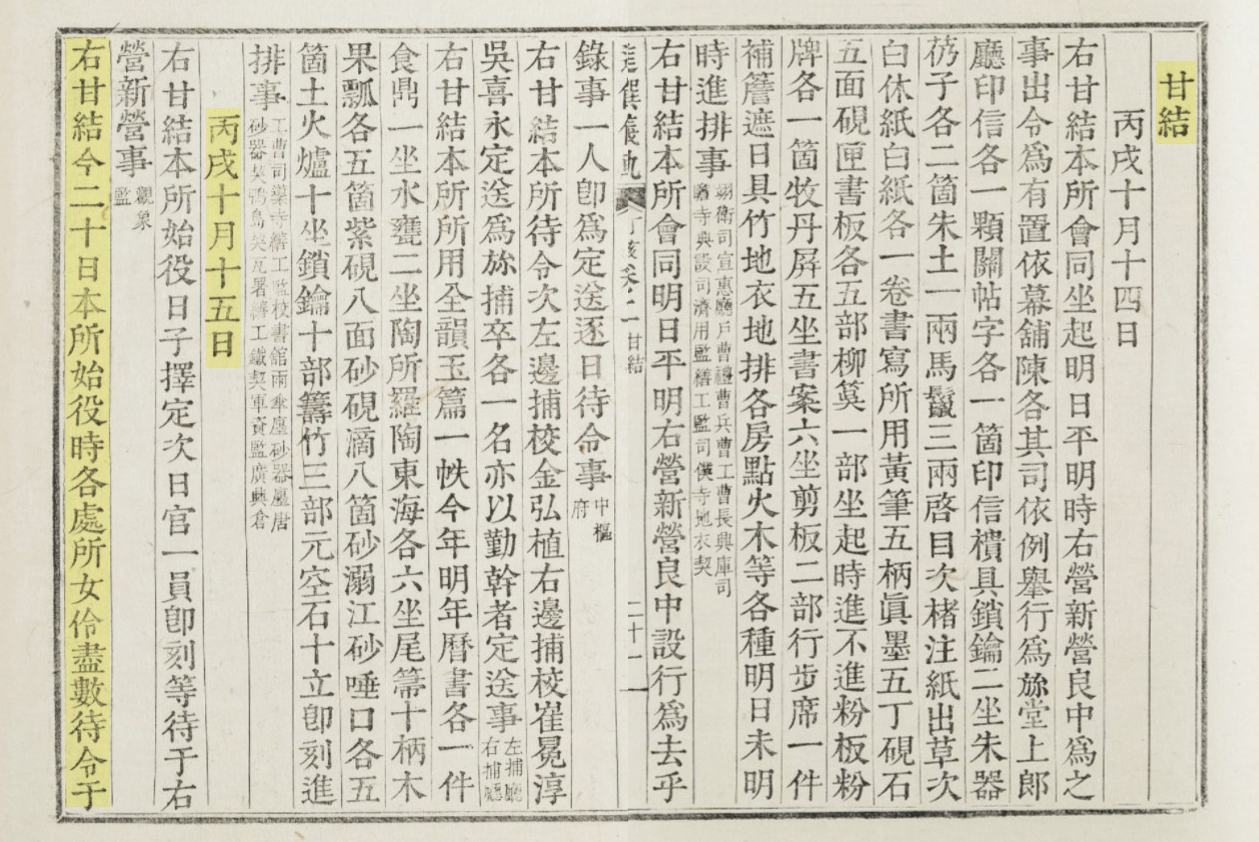 甘結
丙戌十月十四日
右甘結本所會同坐起明日平明時右營新營良中爲之
事出令爲有置依幕舖陳各其司依例擧行爲旀堂上郞
廳印信各一顆關帖字各一箇印信樻具鎖鑰二坐朱器
芿子各二箇朱土一兩馬鬣三兩啓目次楮注紙出草次
白休紙白紙各一卷書寫所用黃筆五柄眞墨五丁硯石
五面硯匣書板各五部柳筽一部坐起時進不進粉板粉
牌各一箇牧丹屛五坐書案六坐剪板二部行步席一件
補簷遮日具竹地衣地排各房點火木等各種明日未明
時進排事 翊衛司宣惠廳戶曹禮曹兵曹工曹長興庫司
寺典設司濟用監繕工監司僕寺地衣契
右甘結本所會同明日平明右營新營良中設行爲去乎
進饌儀軌 丁亥 卷二 甘結 二十一
錄事一人卽爲定送逐日待令事 中樞
府
右甘結本所待令次左邊捕校金弘植右邊捕校崔冕淳
吳喜永定送爲旀捕卒各一名亦以勤幹者定送事 左捕廳
右捕廳
右甘結本所所用全韻玉篇一帙今年明年曆書各一件
食鼎一坐水甕二坐陶所羅陶東海各六坐尾箒十柄木
果瓢各五箇紫硯八面砂硯滴八箇砂溺江砂唾口各五
箇土火爐十坐鎖鑰十部籌竹三部元空石十立卽刻進
排事 工曹司䆃寺繕工監校書館雨傘廛砂器廛唐
砂器契鴨島契瓦署繕工鐵契軍資監廣興倉
丙戌十月十五日
右甘結本所始役日子擇定次日官一員卽刻等待于右
營新營事 觀象
監
右甘結今二十日本所始役時各處所女伶盡數待令于